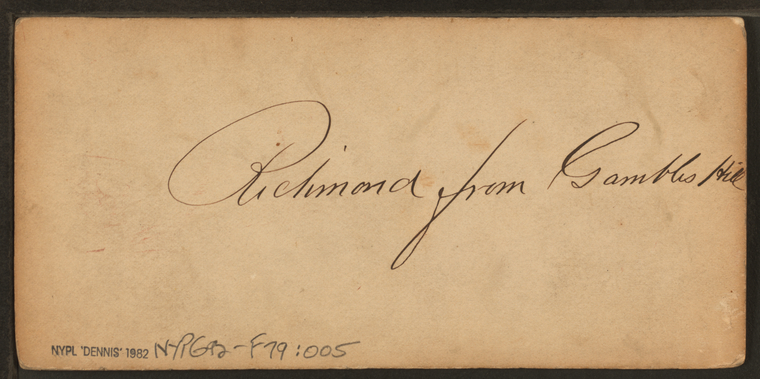 Richmond from Gambles Hill
NYPL "DENNIS" 1982 NYPG92-F79:005